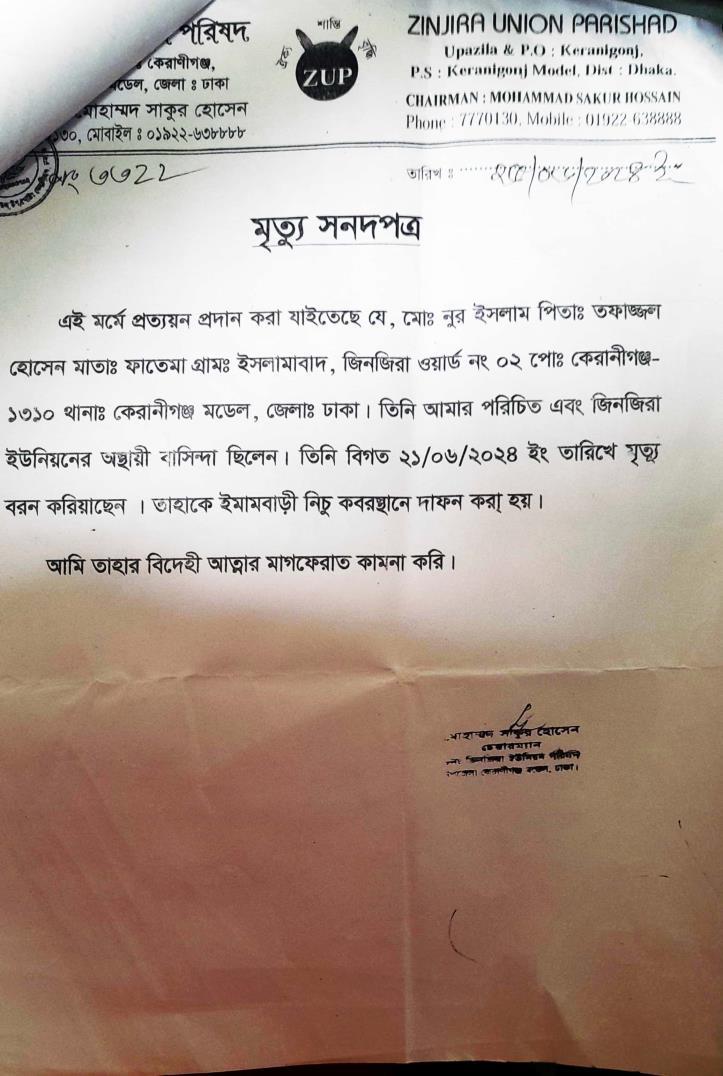 পরিষদ
কেরানীগঞ্জ,
মডেল, জেলা ঃ ঢাকা
মোহাম্মদ সাকুর হোসেন
মোবাইল ঃ ০১৯২২-৬৩৮৮৮৮
শান্তি
ZUP
ZINJIRA UNION PARISHAD
Upazila & P.O : Keranigonj,
P.S : Keranigonj Model, Dist : Dhaka.
CHAIRMAN : MOHAMMAD SAKUR HOSSAIN
Phone : 7770130, Mobile : 01922-638888
তারিখ ঃ
মৃত্যু সনদপত্র
এই মর্মে প্রত্যয়ন প্রদান করা যাইতেছে যে, মোঃ নুর ইসলাম পিতাঃ তফাজ্জল
হোসেন মাতাঃ ফাতেমা গ্রামঃ ইসলামাবাদ, জিনজিরা ওয়ার্ড নং ০২ পোঃ কেরানীগঞ্জ-
১৩১০ থানাঃ কেরানীগঞ্জ মডেল, জেলাঃ ঢাকা। তিনি আমার পরিচিত এবং জিনজিরা
ইউনিয়নের অস্থায়ী বাসিন্দা ছিলেন। তিনি বিগত ২১/০৬/২০২৪ ইং তারিখে মৃত্যু
বরন করিয়াছেন । তাহাকে ইমামবাড়ী নিচু কবরস্থানে দাফন করা হয়।
আমি তাহার বিদেহী আত্নার মাগফেরাত কামনা করি।
সাকুর হোসেন
চেয়ারম্যান
ইউনিয়ন পরিষদ
ঢাকা।